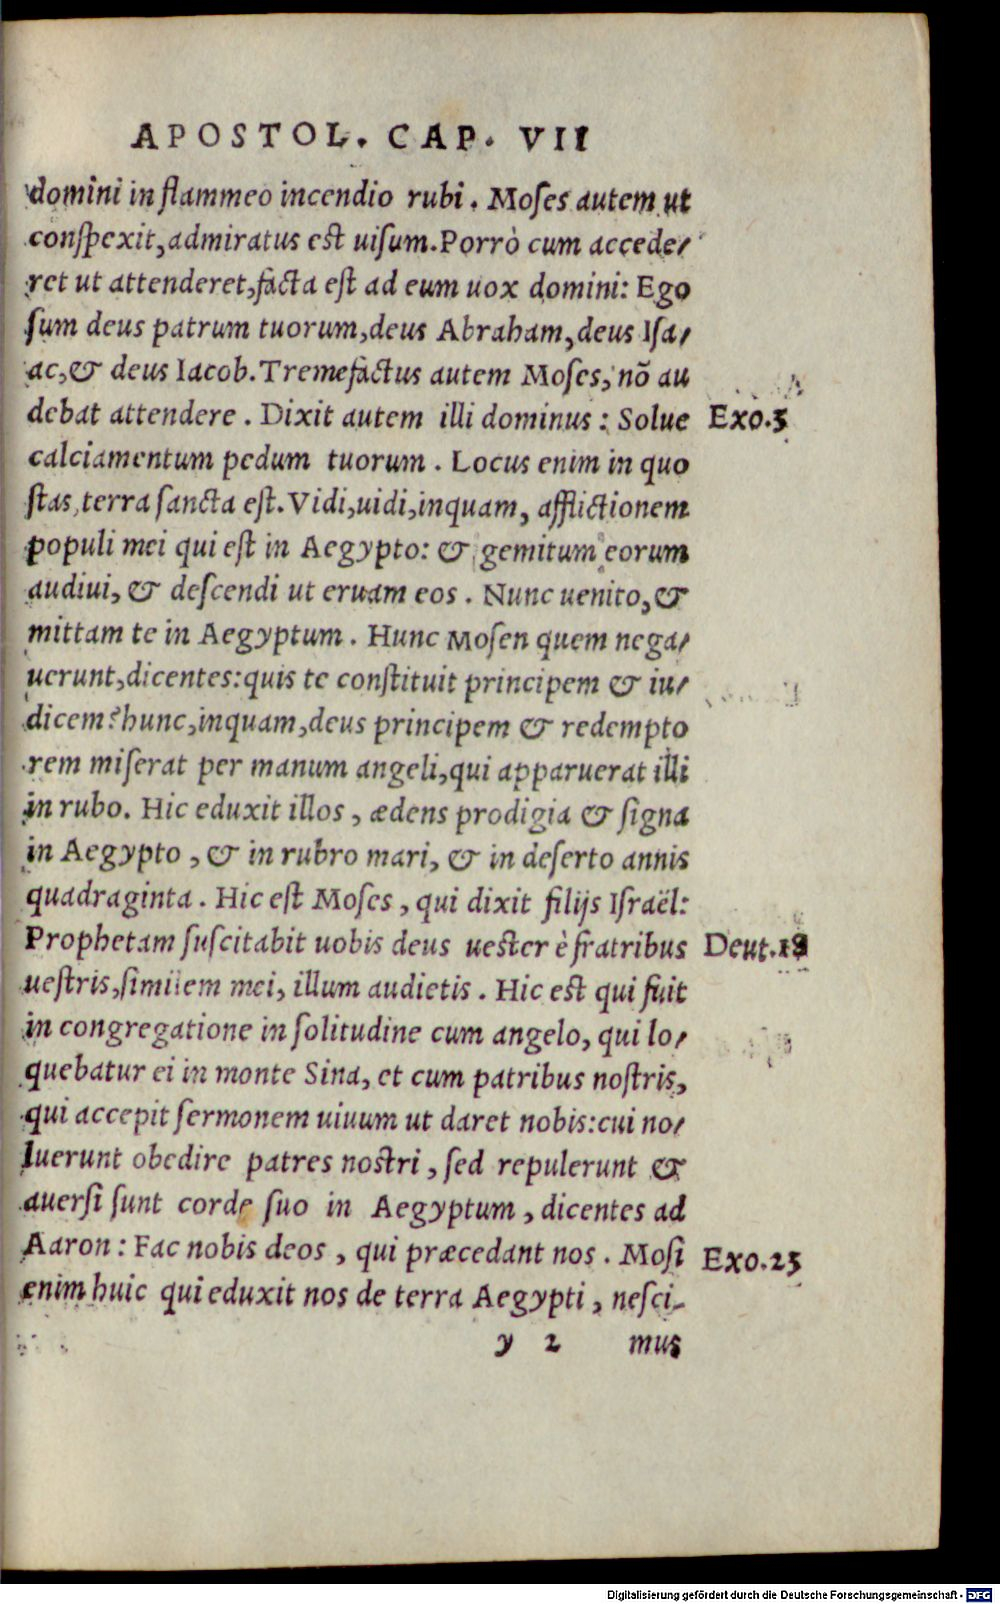 APOSTOL. CAP. VII
domini in flammeo incendio rubi. Moses autem ut
conſpexit, admiratus est uiſum. Porrò cum accede/
ret ut attenderet, facta eſt ad eum uox domini: Ego
ſum deus patrum tuorum, deus Abraham, deus Iſa/
ac, & deus Iacob. Tremefactus autem Moſes, nõ au
debat attendere. Dixit autem illi dominus: Solue Exo.3
calciamentum pedum tuorum. Locus enim in quo
ſtas, terra ſancta eſt. Vidi, uidi, inquam, afflictionem
populi mei qui eſt in Aegypto: & gemitum eorum
audiui, & deſcendi ut eruam eos. Nunc uenito, &
mittam te in Aegyptum. Hunc Moſen quem nega/
uerunt, dicentes: quis te conſtituit principem & iu/
dicem? hunc, inquam, deus principem & redempto
rem miſerat per manum angeli, qui apparuerat illi
in rubo. Hic eduxit illos, ædens prodigia & ſigna
in Aegypto, & in rubro mari, & in deſerto annis
quadraginta. Hic eſt Moſes, qui dixit filijs Iſraël:
Prophetam ſuſcitabit uobis deus ueſter è fratribus Deut.18
ueſtris, ſimilem mei, illum audietis. Hic eſt qui fuit
in congregatione in ſolitudine cum angelo, qui lo/
quebatur ei in monte Sina, et cum patribus noſtris,
qui accepit ſermonem uiuum ut daret nobis: cui no/
luerunt obedire patres noſtri, ſed repulerunt &
auerſi ſunt corde ſuo in Aegyptum, dicentes ad
Aaron: Fac nobis deos, qui præcedant nos. Moſi Exo.23
enim huic qui eduxit nos de terra Aegypti, neſci-
y 2 mus
Digitalisierung gefördert durch die Deutsche Forschungsgemeinschaft - DFG